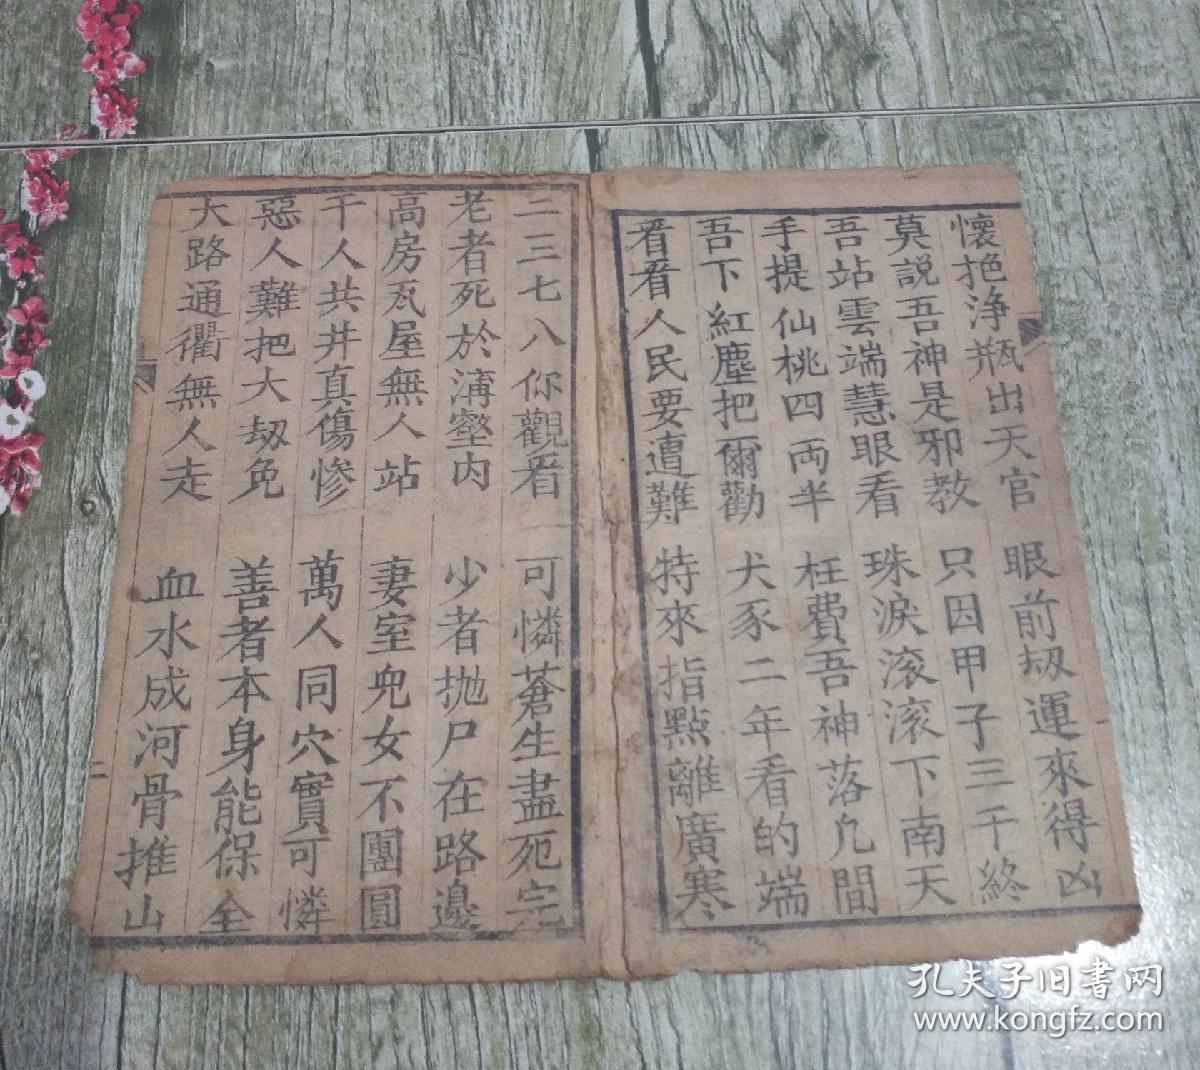 懷抱淨瓶出天官　眼前刼運來得凶
莫説吾神是邪教　只因甲子三千終
吾站雲端慧眼看　珠淚滚滚下南天
手提仙桃四両半　枉費吾神落凢間
吾下紅塵把爾勸　犬豕二年看的端
看看人民要遭難　特來指點離廣寒
二三七八你觀看　可憐蒼生盡死完
老者死於溝壑内　少者抛尸在路邊
高房瓦屋無人站　妻室兒女不團圓
千人共井真傷惨　萬人同穴實可憐
惡人難把大刼免　善者本身能保全
大路通衢無人走　血水成河骨推山
二
孔夫子旧书网
www.kongfz.com